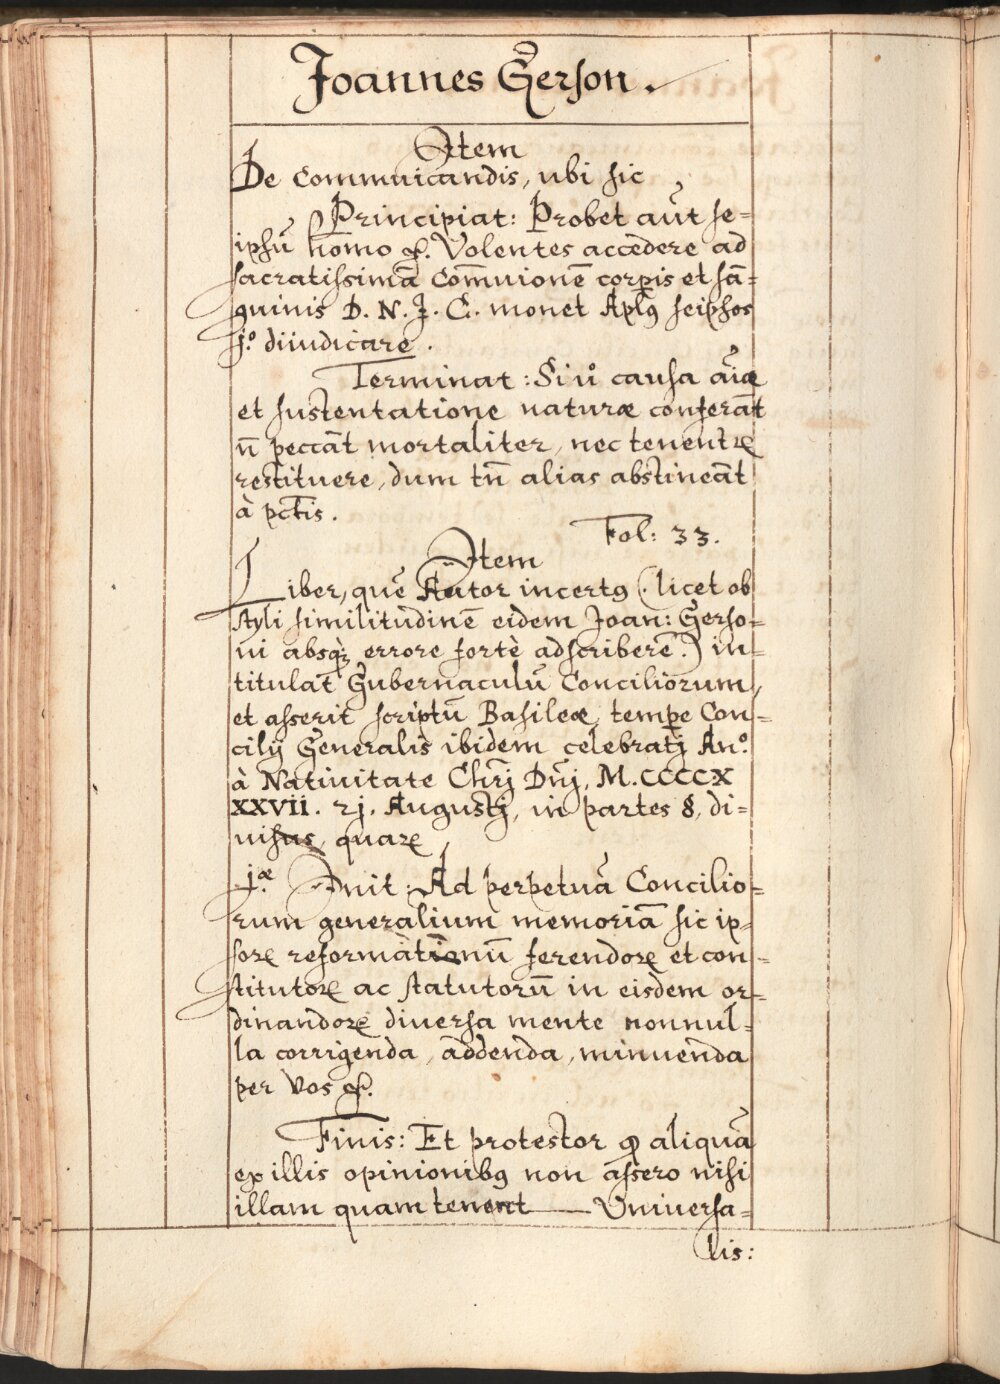 Joannes Gerson.
Item
De Communicandis, ubi sic
Principiat: Probet aūt se=
ipsū homo &. Volentes accedere ad
sacratissimā Com̄vionē corp̱is et sā=
guinis D. N. J. C. monet Aplꝰ seipsos
j.º diiudicare.
Terminat: Siū causa aīæ
et sustentatione naturæ conferāt
n̄ peccāt mortaliter, nec tenentꝛ
restituere, dum tn̄ alias abstineāt
à pctīs.
Fol: 33.
Item
Liber, quē Autor incertꝰ (licet ob
styli similitudinē eidem Joan: Gerso=
ni absq; errore fortè adscriberē.) in=
titulat Gubernaculū Conciliorum,
et asserit scriptū Basileæ, temp̱e Con=
cilij Generalis ibidem celebratj An.º
à Nativitate Chrj̄ Dnj̄, M.CCCCX
XXVII. 2j. Augustj, in partes 8, di=
visas, quaꝝ
j.æ Init: Ad perpetuā Concilio=
rum generalium memoriā sic ip=
soꝝ reformàtionū ferendoꝝ et con=
stitutoꝝ ac statutorū in eisdem or=
dinandoꝝ diversa mente nonnul=
la corrigenda, addenda, minuenda
per vos &.
Finis: Et protestor ꝙ aliquā
ex illis opinionibꝰ non assero nisi
illam quam tenent — Universa=
lis: